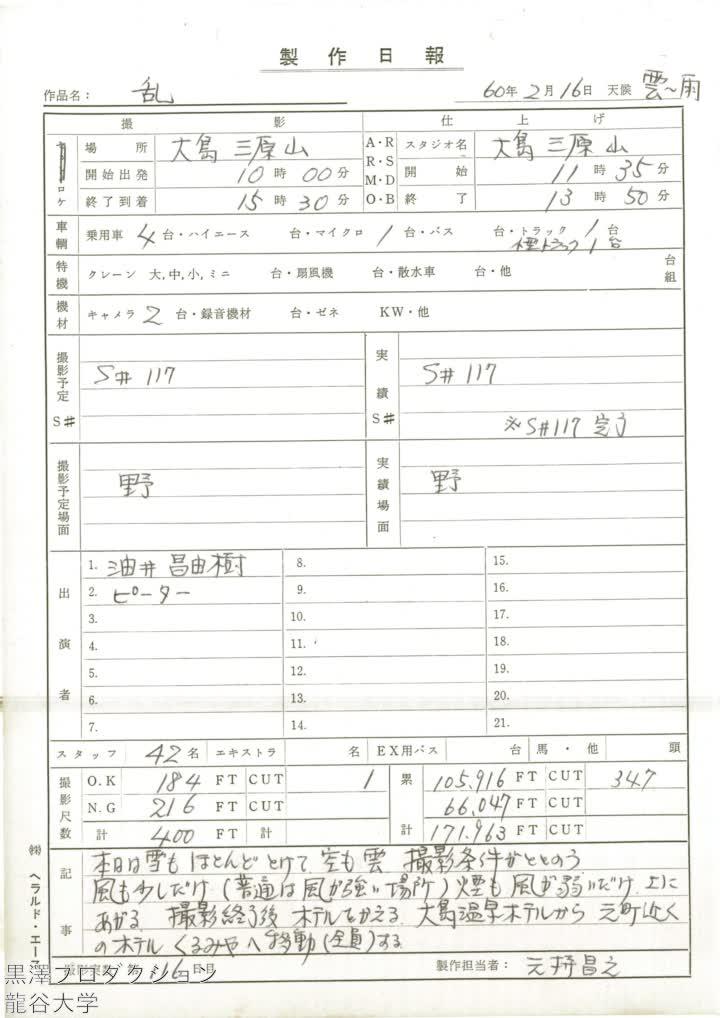 製作日報
作品名： 乱 60年2月16日 天候 雲〜雨
撮影 仕上げ
ロケ 場所 大島 三原山 A・R スタジオ名 大島 三原山
開始出発 10時00分 R・S 開始 11時35分
M・D
終了到着 15時30分 O・B 終了 13時50分
車輌 乗用車 4台・ハイエース 台・マイクロ 1台・バス 台・トラック 1台
トラック 1台
特機 クレーン 大,中,小,ミニ 台・扇風機 台・散水車 台・他 台組
機材 キャメラ 2台・録音機材 台・ゼネ KW・他
撮影予定 S# S#117 実績 S# S#117
※S#117 完了
撮影予定場面 野 実績場面 野
出演者
1. 油井 昌由樹 8. 15.
2. ピーター 9. 16.
3. 10. 17.
4. 11. 18.
5. 12. 19.
6. 13. 20.
7. 14. 21.
スタッフ 42名 エキストラ 名 EX用バス 台 馬・他 頭
撮影尺数 O.K 184 FT CUT 1 累計 105,916 FT CUT 347
N.G 216 FT CUT 66,047 FT CUT
計 400 FT 計 171,963 FT CUT
記事
本日は雪もほとんどとけて、空も雲、撮影条件がととのう
風も少しだけ(普通は風が強い場所)煙も風が弱いだけ、上に
あがる、撮影終了後ホテルをかえる、大島温泉ホテルから元町近く
のホテルくるみやへ移動(全員)する
撮影実数 第 116日目 製作担当者： 元持昌之
㈱ ヘラルド・エース
黒澤プロダクション
龍谷大学